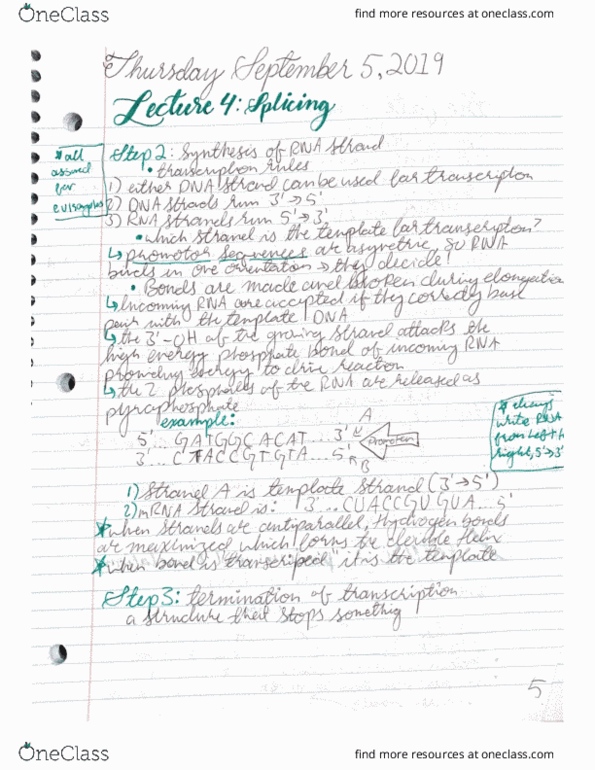 OneClass
find more resources at oneclass.com
Thursday September 5, 2019
Lecture 4: Splicing
* all
assumed
for
examples
Step 2: Synthesis of RNA Strand
• transcription rules
1) either DNA strand can be used for transcription
2) DNA strands run 3'→5'
3) RNA strands run 5'→3'
• which strand is the template for transcription?
↳ promotor sequences are asymetric, so RNA
binds in one orientation → they decide!
• Bonds are made and broken during elongation
↳ Incoming RNA are accepted if they correctly base
pair with the template DNA
↳ the 3'-OH of the growing strand attacks the
high energy phosphate bond of incoming RNA
providing energy to drive reaction
↳ the 2 phosphates of the RNA are released as
pyrophosphate
example:
A
5' ... GATGGCACAT ... 3'
promotor
3' ... CTACCGTGTA ... 5'
B
* always
write RNA
from left to
right, 5'→3'
1) Strand A is template strand (3'→5')
2) mRNA strand is: 3' ... CUACCGUGUA ... 5'
* when strands are antiparallel, Hydrogen bonds
are maximized which forms the double Helix
* "when bond is transcriped" it is the template
Step 3: termination of transcription
a structure that stops somethig
5
OneClass
find more resources at oneclass.com